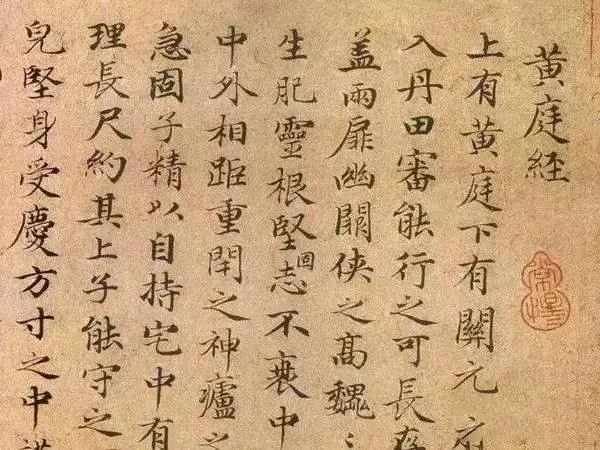 黄庭経
上有黄庭下有關元
入丹田審能行之可長存
盖兩扉幽關俠之髙巍〻
生肥靈根堅志不衰中
中外相距重閇之神廬之
急固子精以自持宅中有
理長尺約其上子能守之
皃堅身受慶方寸之中